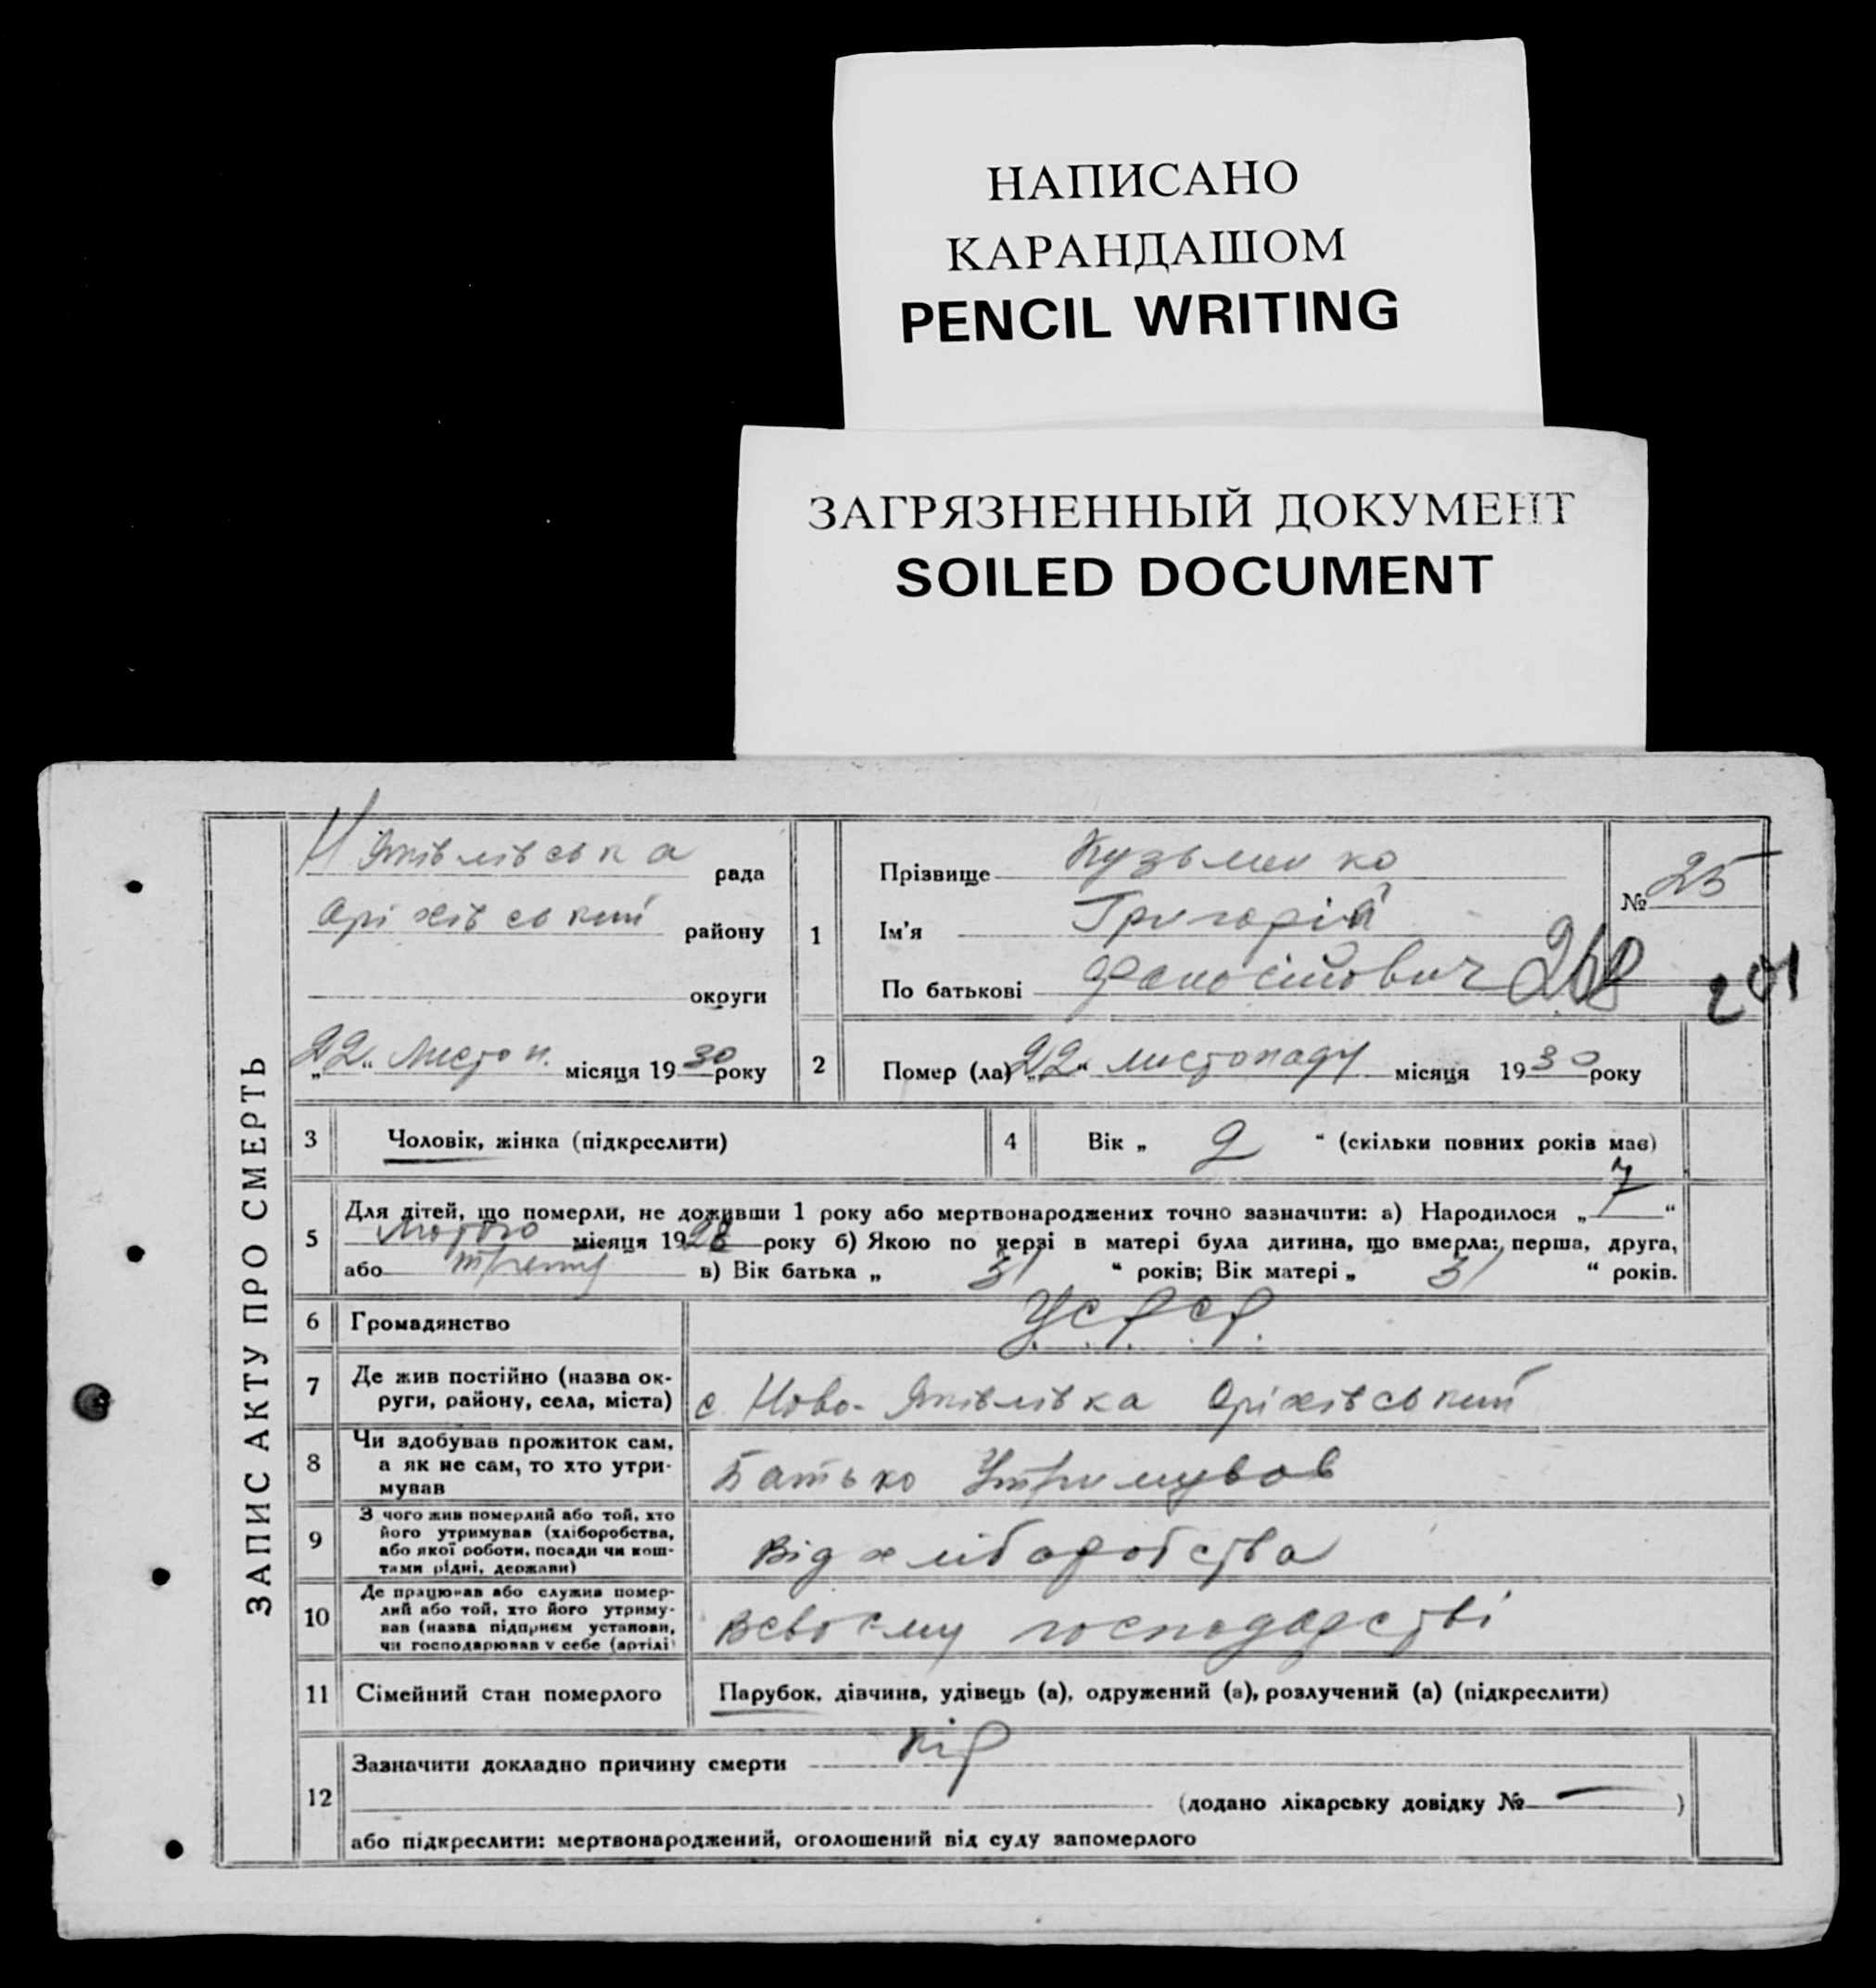 НАПИСАНО
КАРАНДАШОМ
PENCIL WRITING
ЗАГРЯЗНЕННЫЙ ДОКУМЕНТ
SOILED DOCUMENT
ЗАПИС АКТУ ПРО СМЕРТЬ
Н Яківлівська рада
Оріхівський району
округи
„22“ Листоп. місяця 1930 року
1
Прізвище Кузьменко
Ім'я Григорій
По батькові
№ 25
268
201
2 Помер (ла) „22“ листопаду місяця 1930 року
3 Чоловік, жінка (підкреслити)
4 Вік „ 2 “ (скільки повних років має)
5
Для дітей, що померли, не доживши 1 року або мертвонароджених точно зазначити: а) Народилося „ 7 “
Лютого місяця 1928 року б) Якою по черзі в матері була дитина, що вмерла: перша, друга,
або в) Вік батька „ 31 “ років; Вік матері „ 31 “ років.
6 Громадянство У.С.Р.С.Р.
7 Де жив постійно (назва ок-
руги, району, села, міста) с. Ново-Яківлівка Оріхівський
8 Чи здобував прожиток сам,
а як не сам, то хто утри-
мував Батько Утримував
9 З чого жив померлий або той, хто
його утримував (хліборобства,
або якої роботи, посади чи кош-
тами рідні, держави) Від хліборобства
10 Де працював або служив помер-
лий або той, хто його утриму-
вав (назва підприєм установи,
чи господарював у себе (артілі) Всвоєму господарстві
11 Сімейний стан померлого Парубок, дівчина, удівець (а), одружений (а), розлучений (а) (підкреслити)
12
Зазначити докладно причину смерти кір
(додано лікарську довідку № — )
або підкреслити: мертвонароджений, оголошений від суду запомерлого